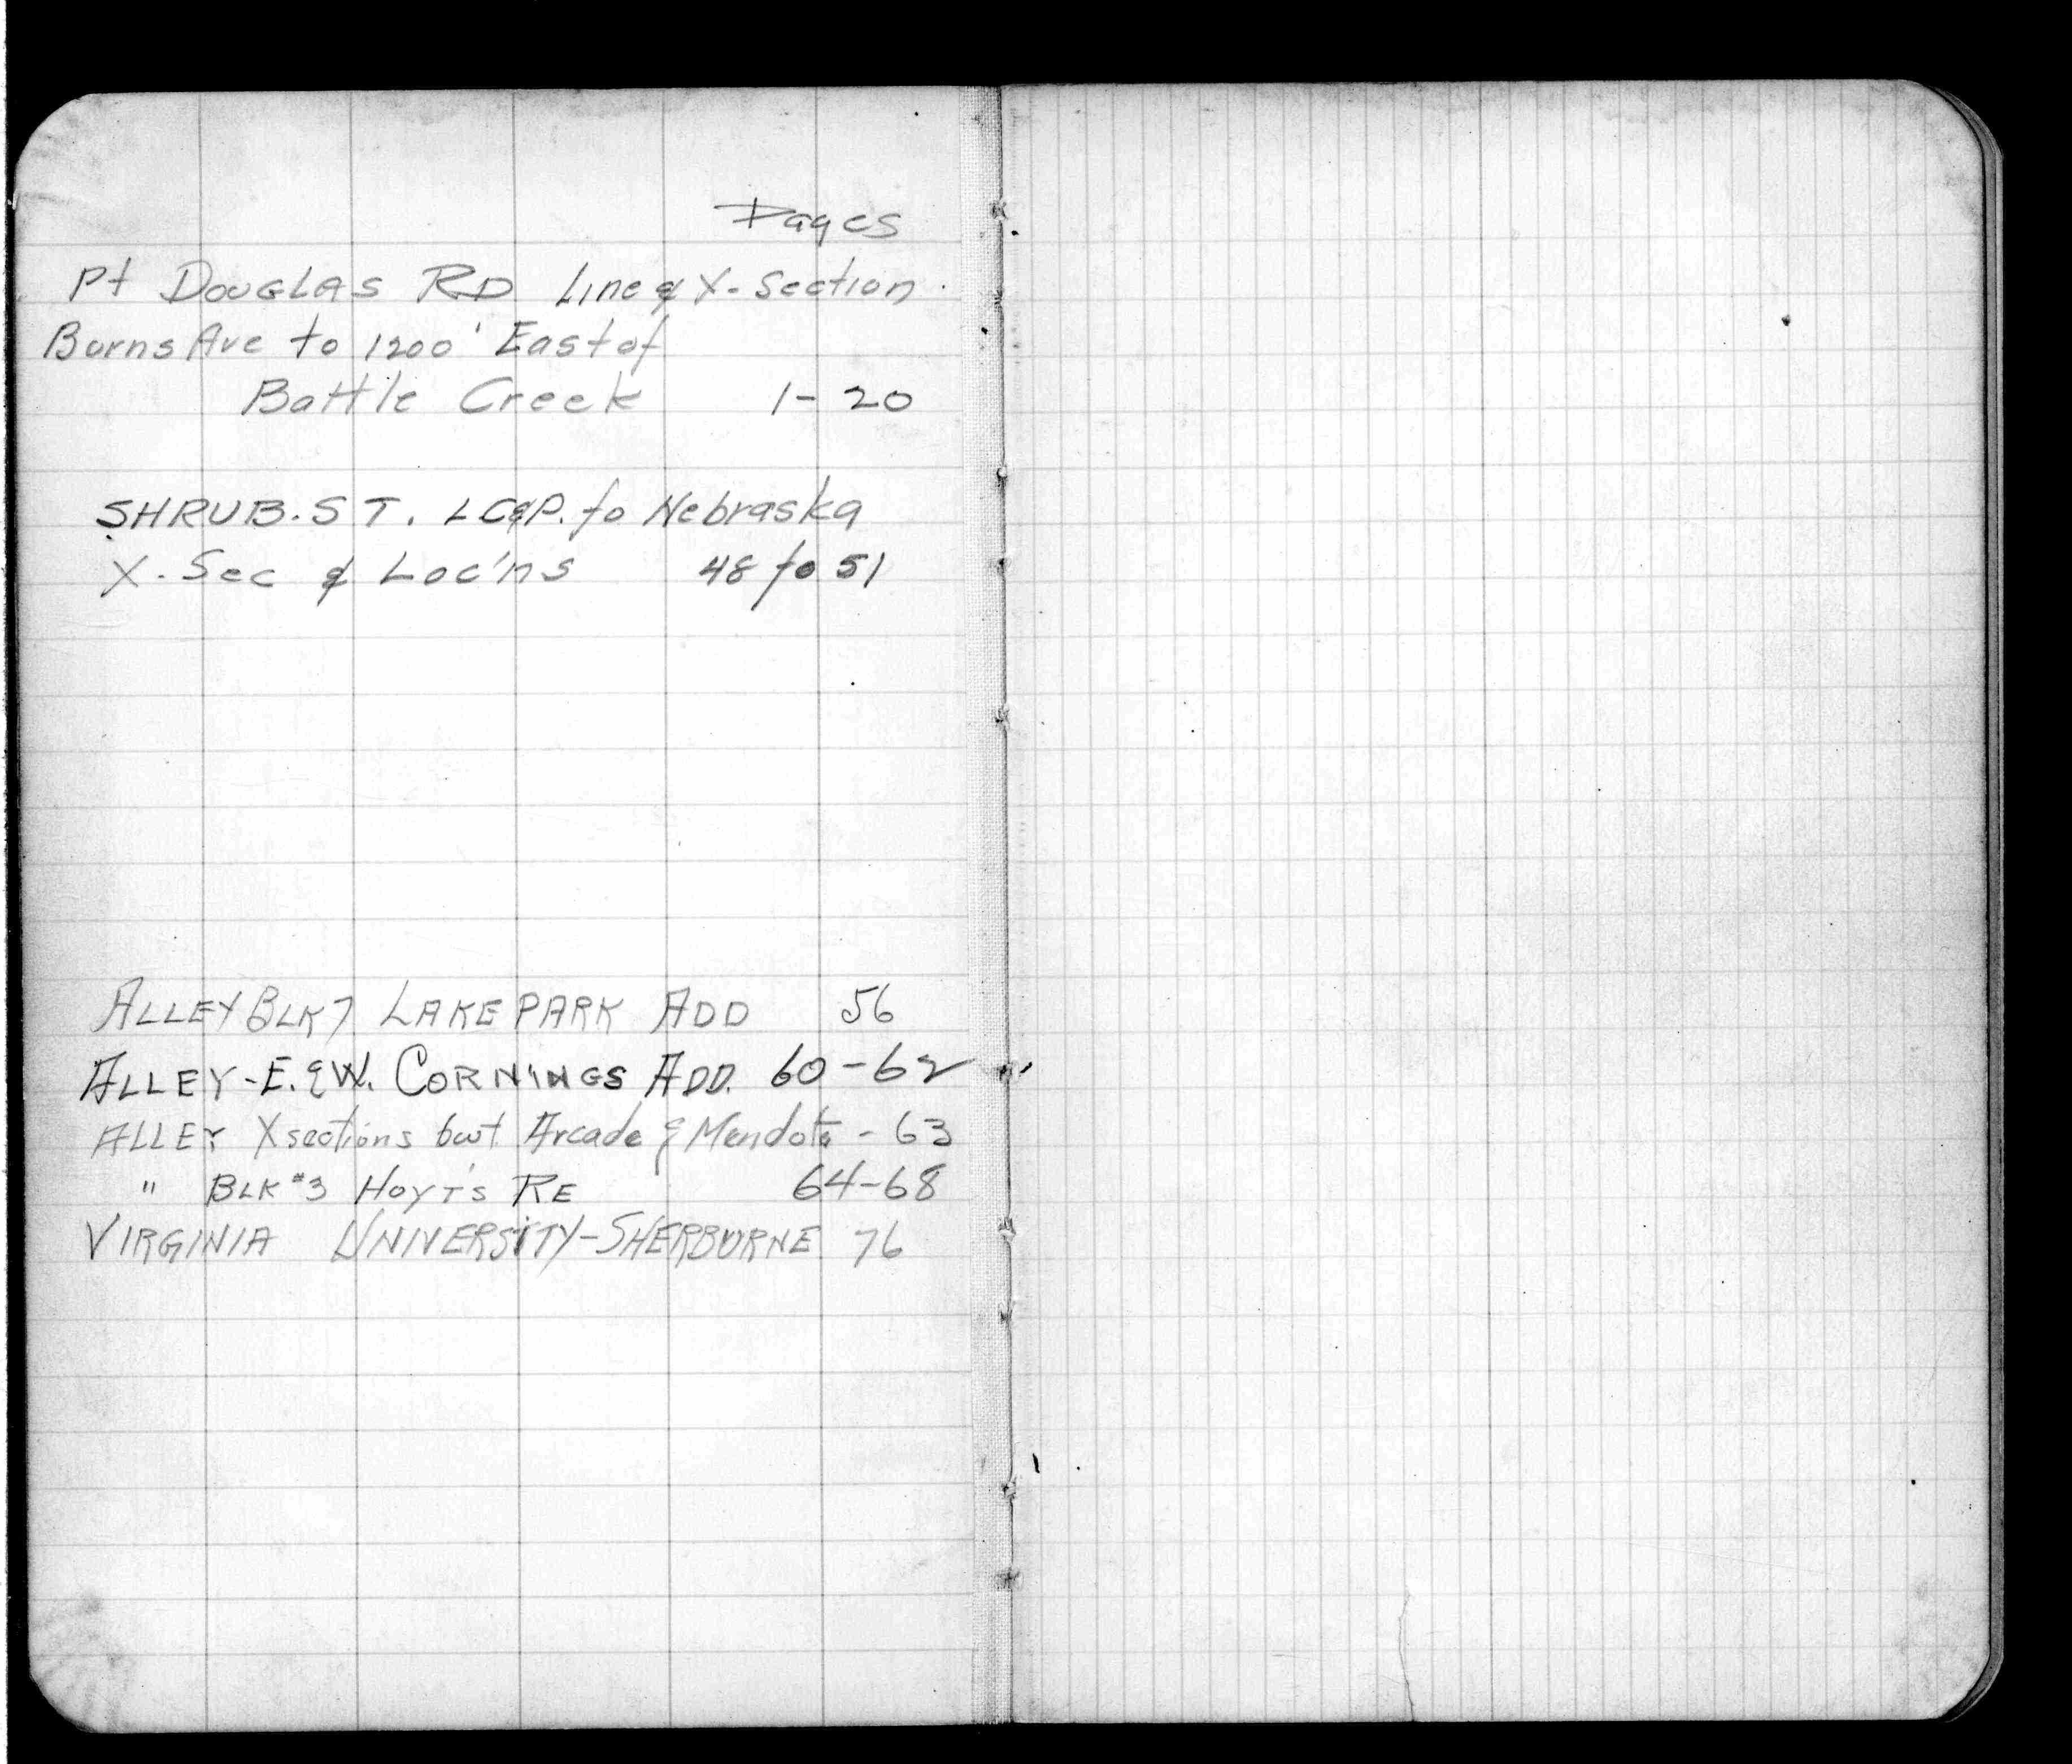 Pages
Pt DOUGLAS RD Line & X-Section
Burns Ave to 1200' East of
Battle Creek 1-20
SHRUB. ST. LC&P. to Nebraska
X-Sec & Loc'ns 48 to 51
ALLEY BLK 7 LAKE PARK ADD 56
ALLEY-E. & W. CORNINGS ADD. 60-62
ALLEY X sections bet Arcade & Mendota - 63
" BLK #3 HOYT'S RE 64-68
VIRGINIA UNIVERSITY-SHERBURNE 76